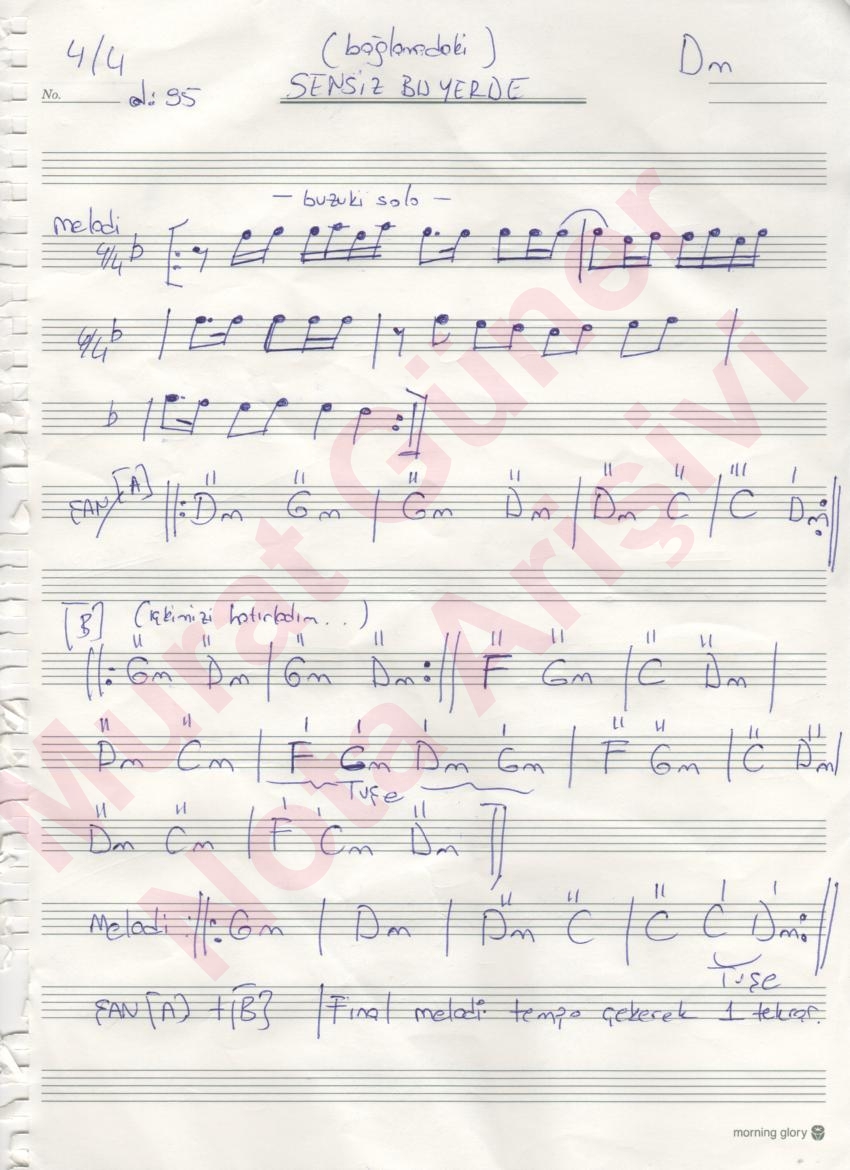 4/4 (bağlamadaki) Dm
No. ♩: 95 SENSİZ BU YERDE
— buzuki solo —
melodi
4/4 b
4/4 b
b
ŞAN [A] ||: Dm Gm | Gm Dm | Dm C | C Dm :||
[B] (İkimizi hatırladım...)
||: Gm Dm | Gm Dm :|| F Gm | C Dm |
Dm Cm | F Gm Dm Gm | F Gm | C Dm |
Tuşe
Dm Cm | F Cm Dm ||
Melodi :||: Gm | Dm | Dm C | C C Dm :||
Tuşe
ŞAN [A] + [B] | Final melodi tempo çekerek 1 tekrar.
morning glory
Murat Güner
Nota Arişivi